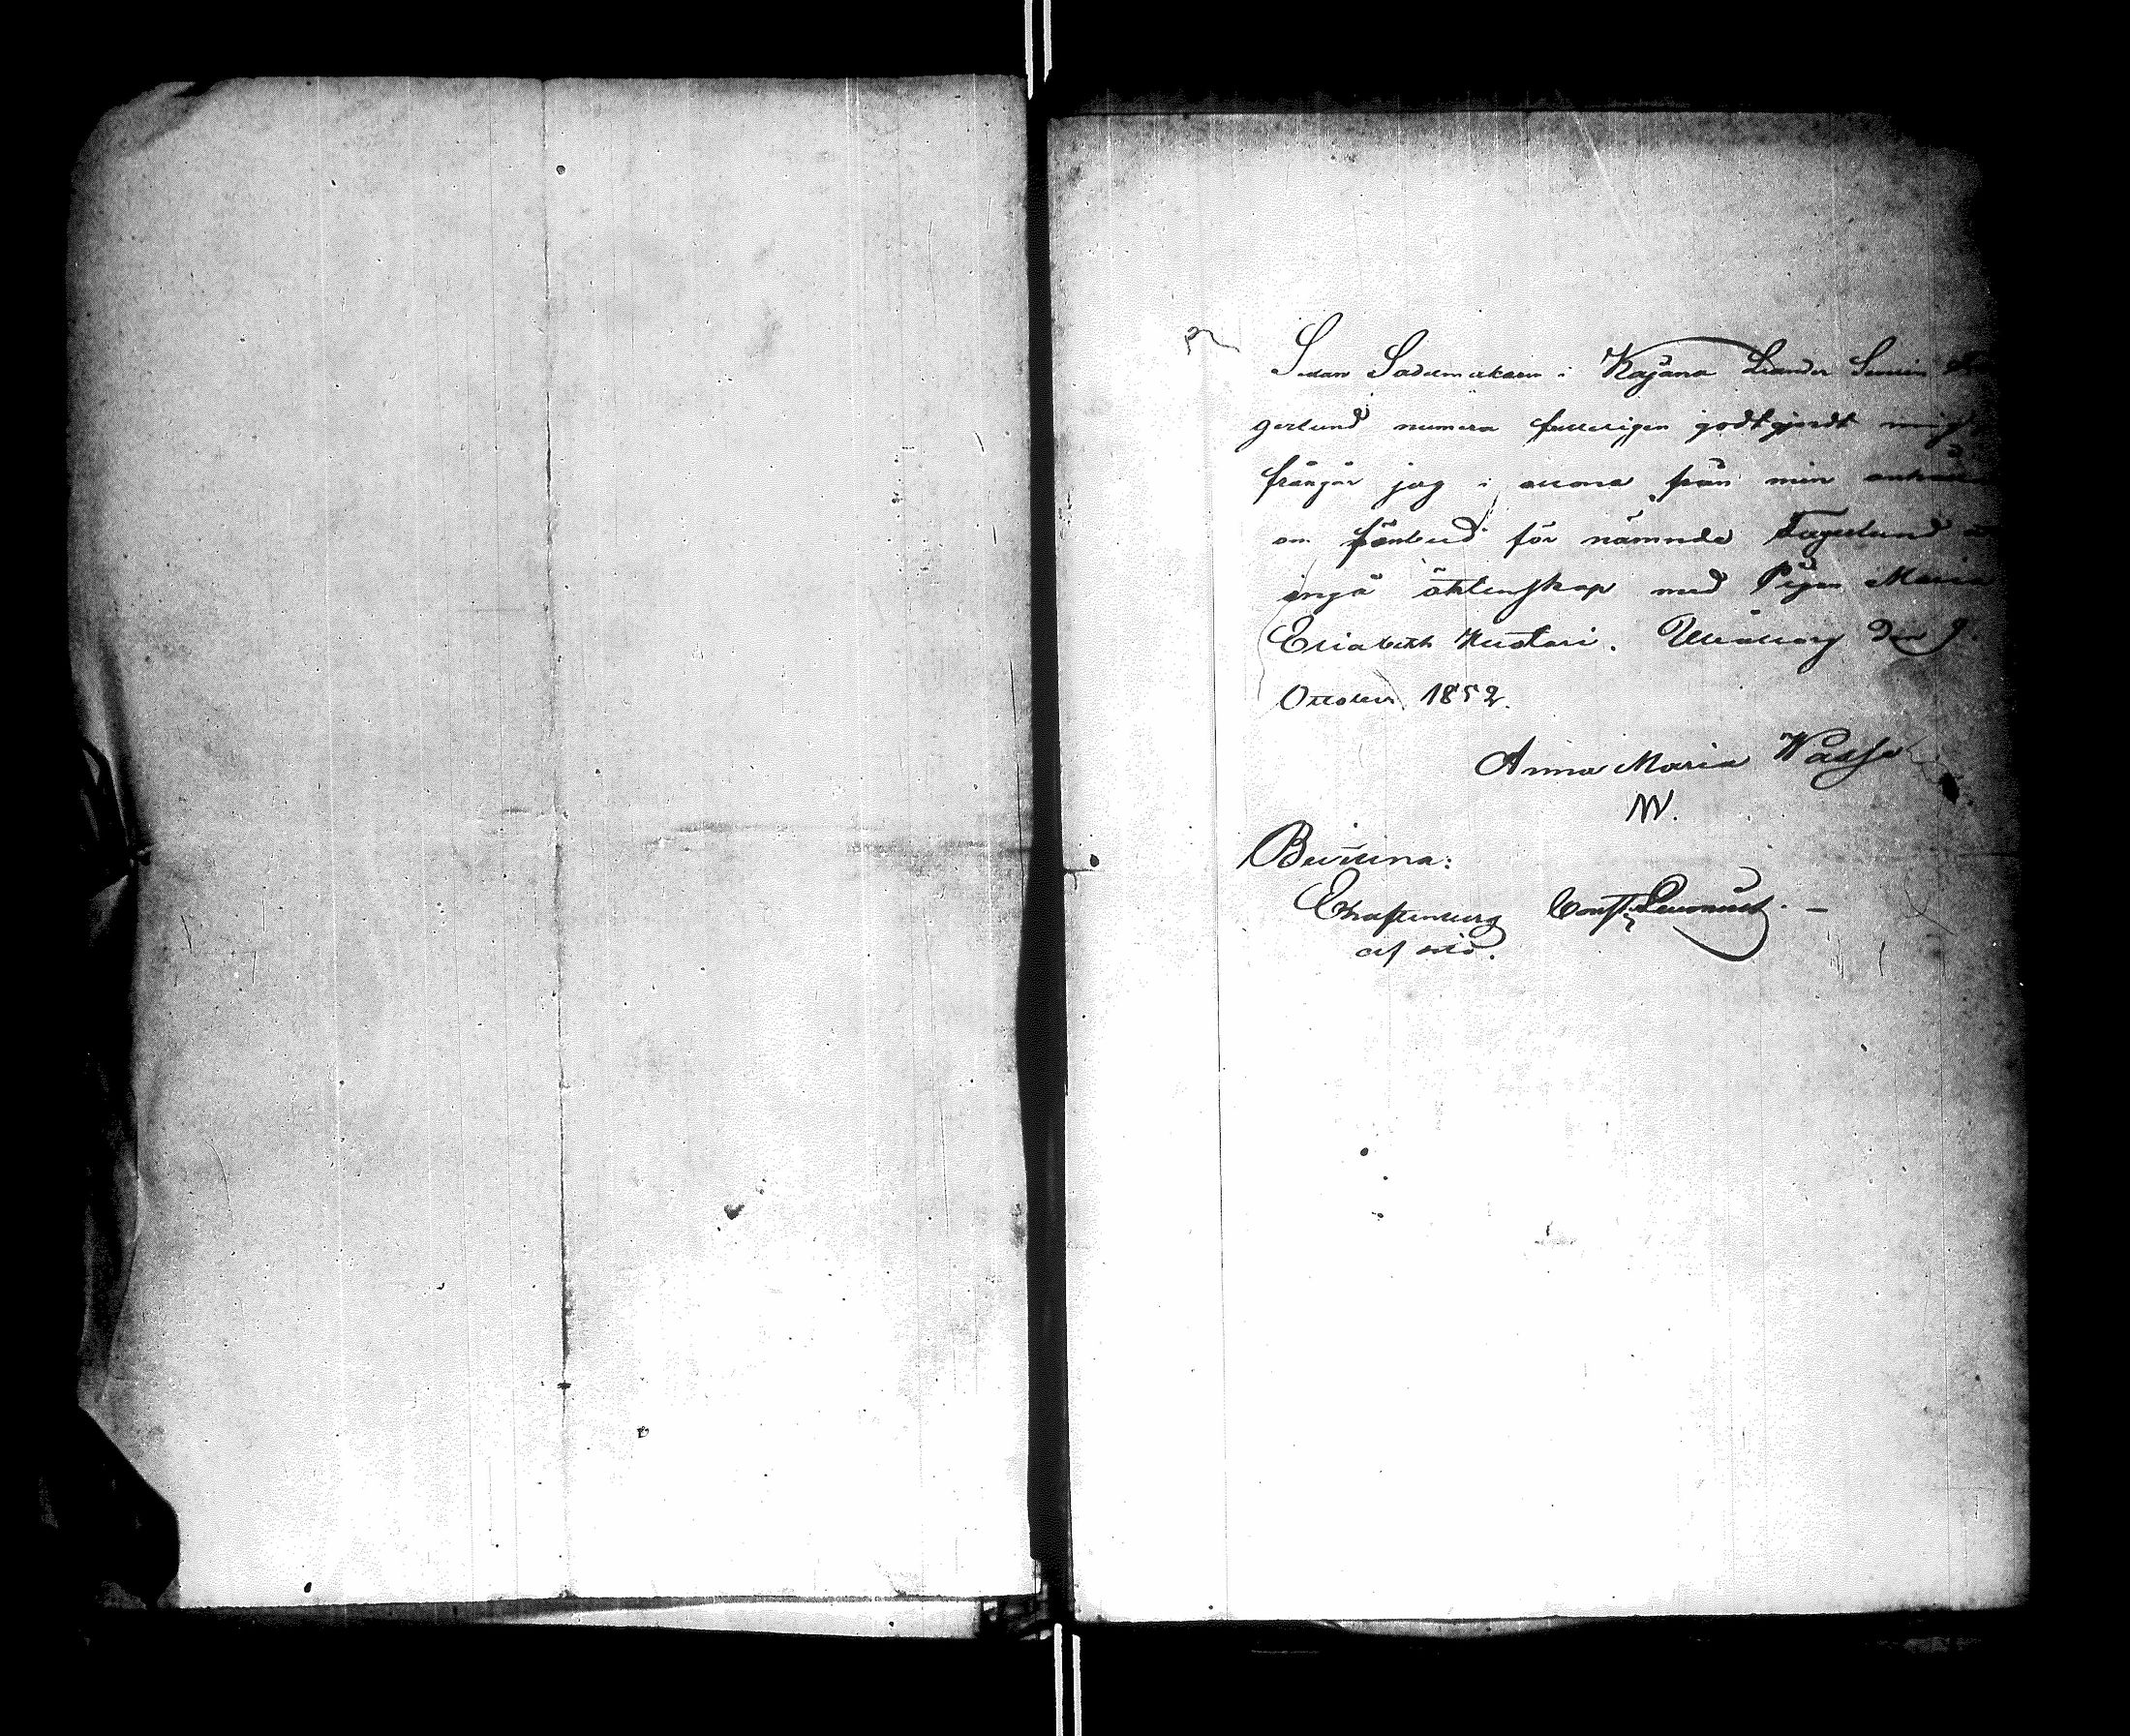 Sedan Sadelmakaren i Kajana Leander Severin Fa
gerlund numera fulleligen godtgjordt mig
frångår jag i allona från min anhållan
om förbud för nämnde Fagerlund att
ingå äktenskap med Pigan Maria
Elisabeth Kustari. Uleåborg den 9
October 1852.
Anna Maria Wasse
W.
Bevittna:
Const.